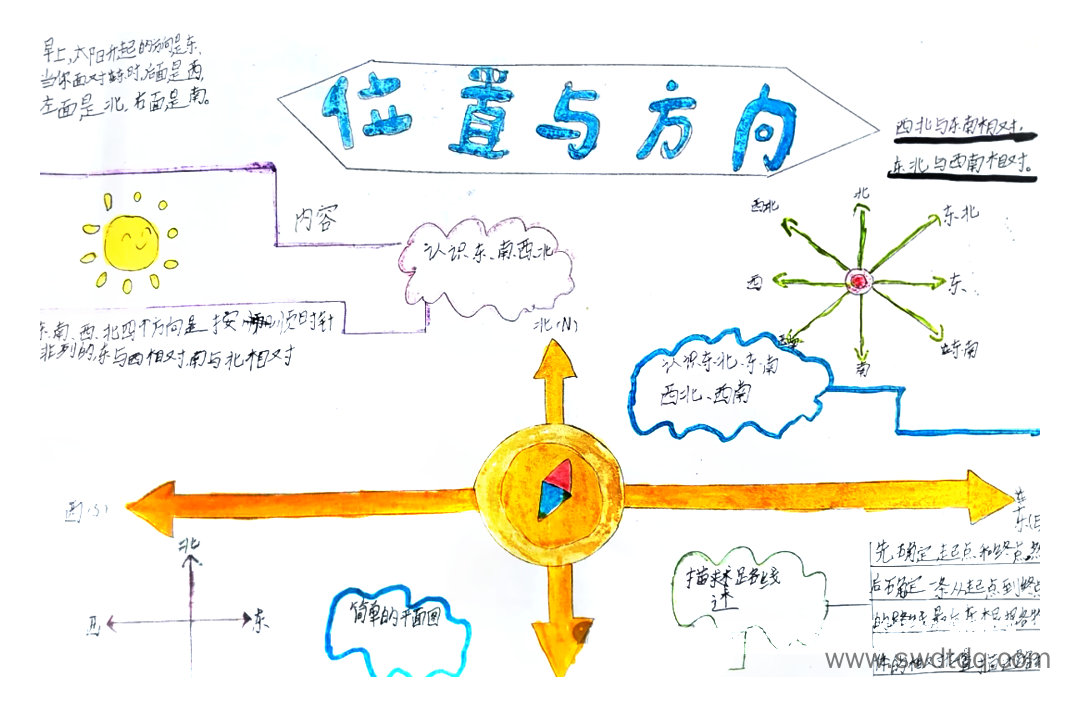 位置与方向
早上,太阳升起的方向是东、
当你面对东时,后面是西,
左面是北,右面是南。
西北与东南相对.
东北与西南相对。
内容
认识东、南、西、北
东、南、西、北四个方向是按顺时针
排列的,东与西相对,南与北相对
西北
北
东北
西
东
南
东南
认识东北、东南
西北、西南
北(N)
西(S)
东(E
北
东
简单的平面图
描述路线
先确定走起点和终点,然
后确定一条从起点到终点
的路线
www.swdtdq.com